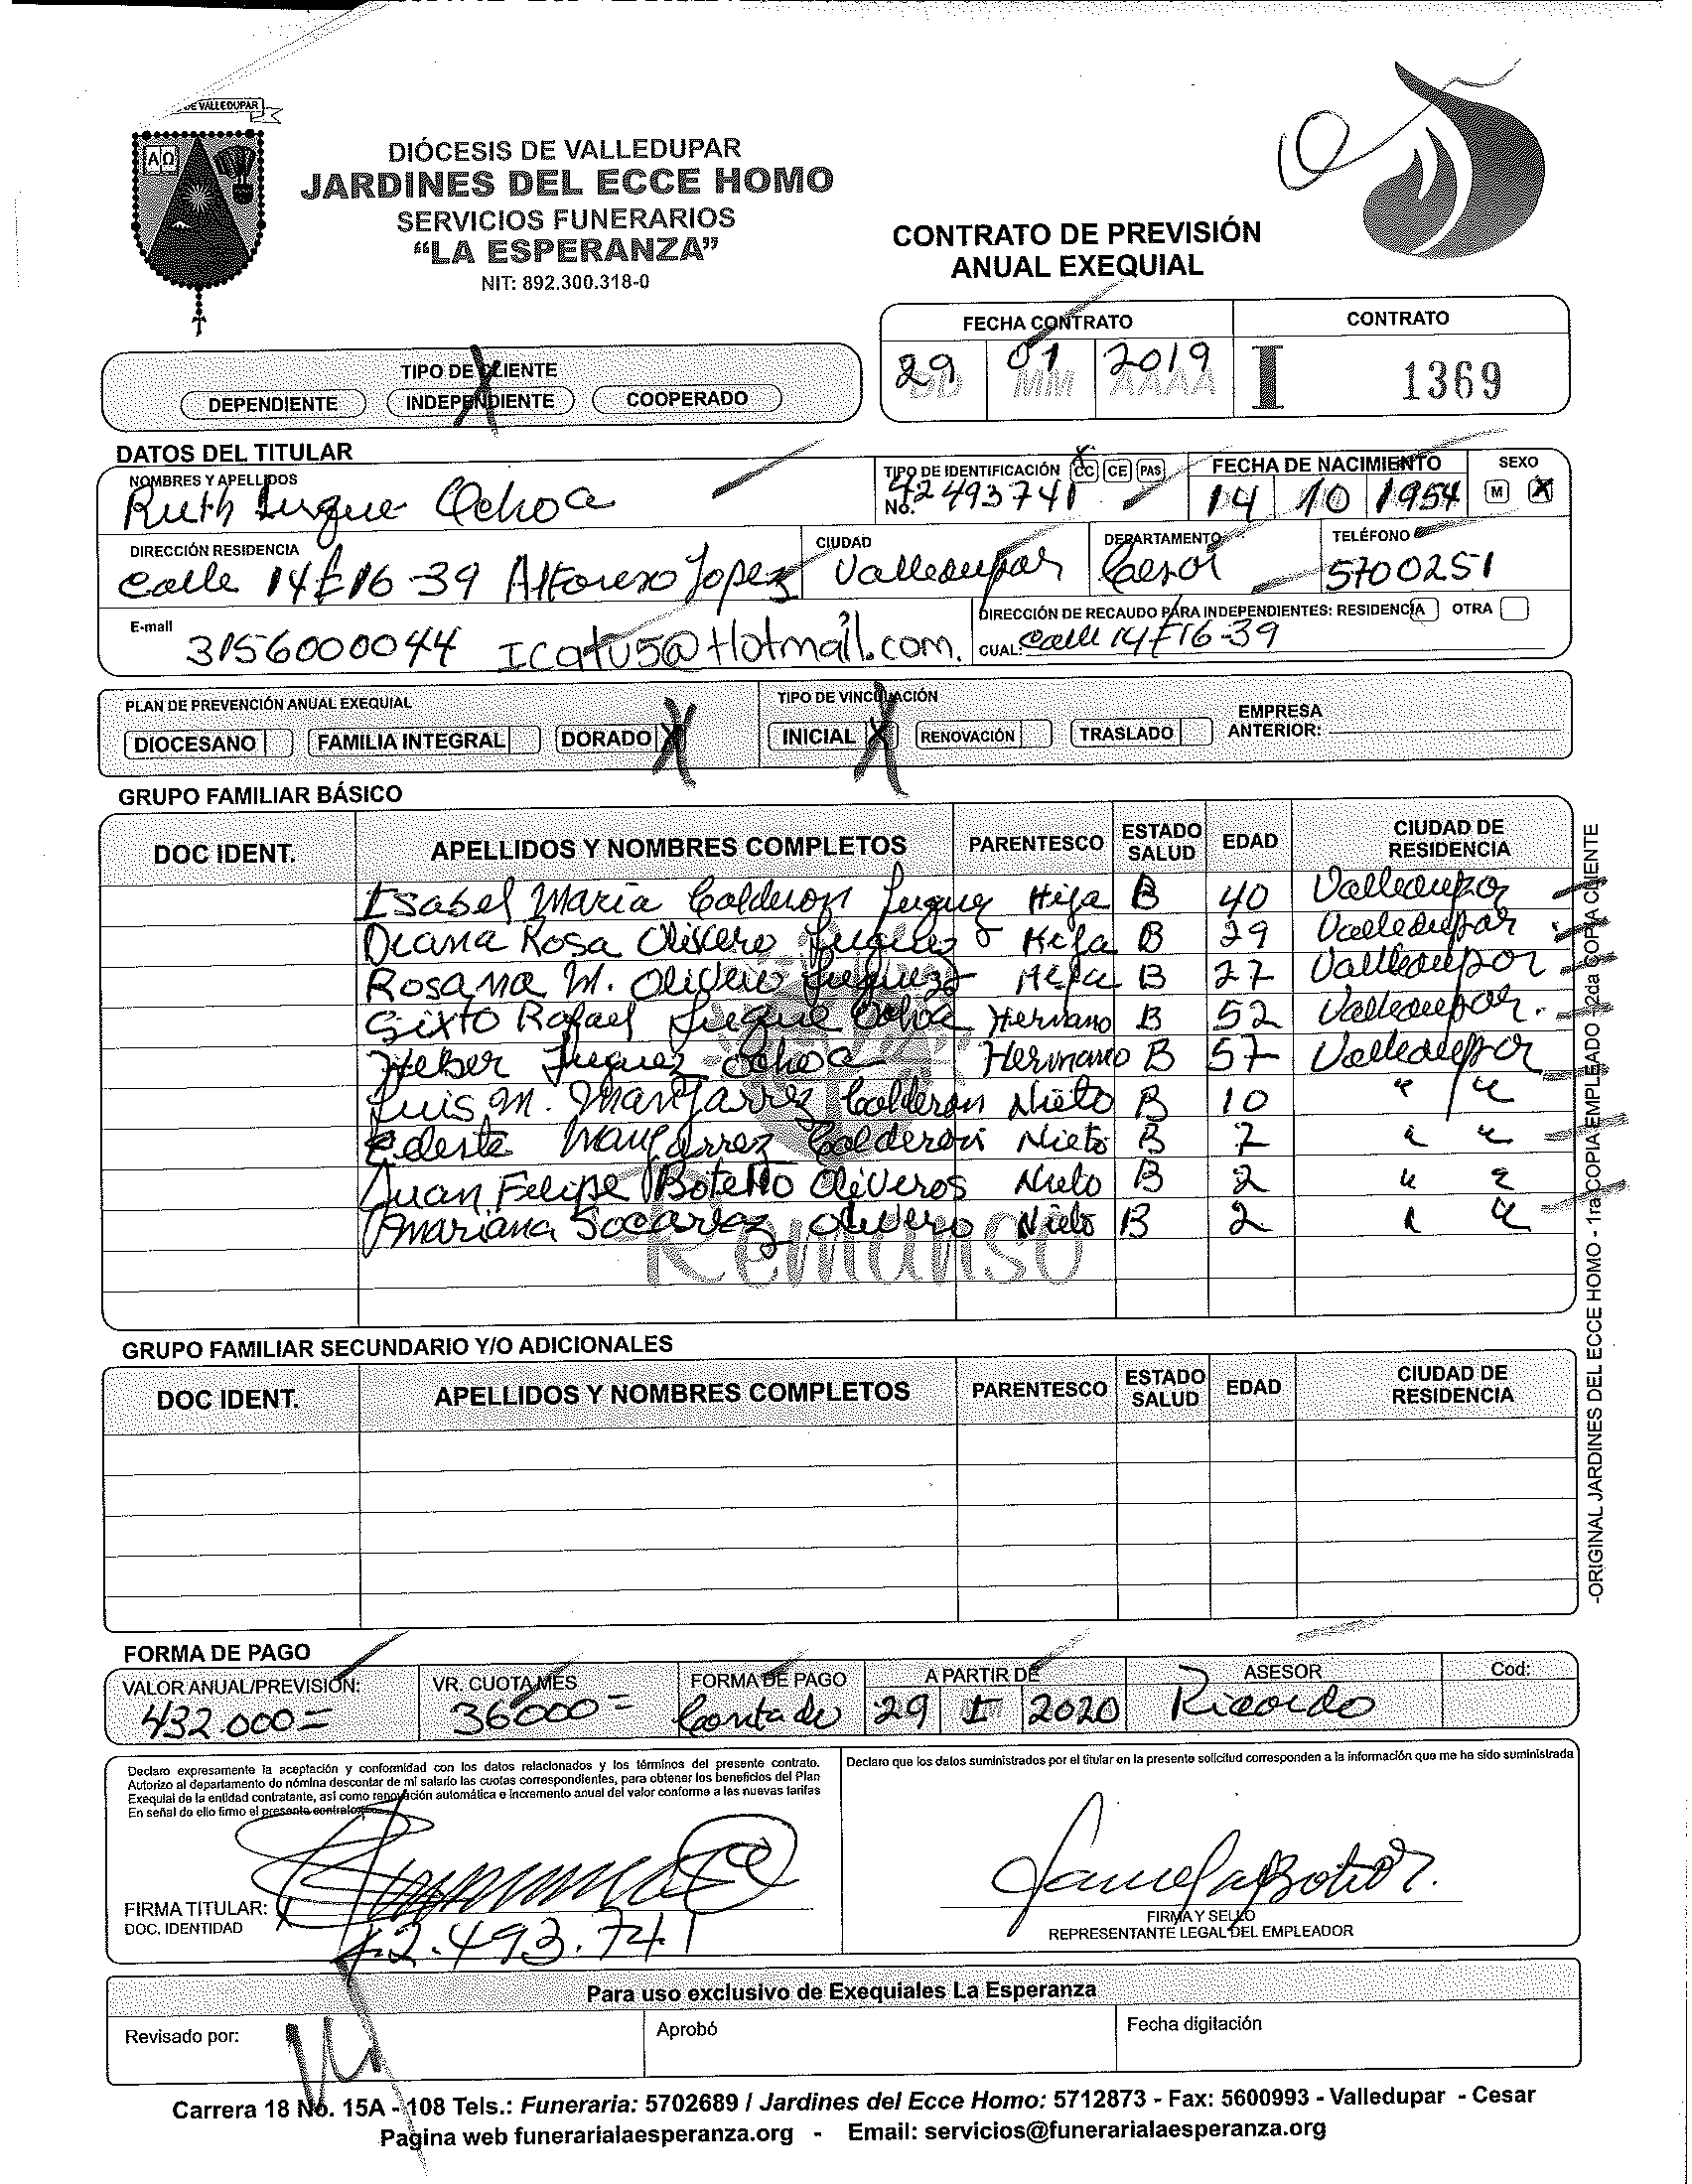 DE VALLEDUPAR
ΑΩ
DIÓCESIS DE VALLEDUPAR
JARDINES DEL ECCE HOMO
SERVICIOS FUNERARIOS
“LA ESPERANZA”
NIT: 892.300.318-0
CONTRATO DE PREVISIÓN
ANUAL EXEQUIAL
FECHA CONTRATO CONTRATO
29 01 2019 I 1369
DD MM AAAA
TIPO DE CLIENTE
DEPENDIENTE INDEPENDIENTE X COOPERADO
DATOS DEL TITULAR
NOMBRES Y APELLIDOS TIPO DE IDENTIFICACIÓN CC X CE PAS FECHA DE NACIMIENTO SEXO
Ruth Luque Ochoa No. 42493741 14 10 1954 M X
DIRECCIÓN RESIDENCIA CIUDAD DEPARTAMENTO TELÉFONO
Calle 14 E 16-39 Alfonso Lopez Valledupar Cesar 5700251
E-mail DIRECCIÓN DE RECAUDO PARA INDEPENDIENTES: RESIDENCIA OTRA
3156000044 Icatu5@Hotmail.com. CUAL: Calle 14 E 16-39
PLAN DE PREVENCIÓN ANUAL EXEQUIAL TIPO DE VINCULACIÓN
DIOCESANO FAMILIA INTEGRAL DORADO X INICIAL X RENOVACIÓN TRASLADO EMPRESA ANTERIOR:
GRUPO FAMILIAR BÁSICO
DOC IDENT. APELLIDOS Y NOMBRES COMPLETOS PARENTESCO ESTADO SALUD EDAD CIUDAD DE RESIDENCIA
Isabel Maria Calderon Luquez Hija B 40 Valledupar
Diana Rosa Olivero Luquez Hija B 29 Valledupar
Rosana M. Olivero Luquez Hija B 27 Valledupar
Sixto Rafael Luque Ochoa Hermano B 52 Valledupar.
Heber Luquez Ochoa Hermano B 57 Valledupar
Luis M. Mangarrez Calderon Nieto B 10 " "
Celeste Mangarrez Calderon Nieto B 7 " "
Juan Felipe Botello Oliveros Nieto B 2 " "
Mariana Socarrez Olivero Nieto B 2 " "
Remanso
GRUPO FAMILIAR SECUNDARIO Y/O ADICIONALES
DOC IDENT. APELLIDOS Y NOMBRES COMPLETOS PARENTESCO ESTADO SALUD EDAD CIUDAD DE RESIDENCIA
-ORIGINAL JARDINES DEL ECCE HOMO - 1ra COPIA EMPLEADO - 2da COPIA CLIENTE
FORMA DE PAGO
VALOR ANUAL/PREVISIÓN: VR. CUOTA MES FORMA DE PAGO A PARTIR DE ASESOR Cod:
432.000= 36000= Contado 29 I 2020 Ricardo
Declaro expresamente la aceptación y conformidad con los datos relacionados y los términos del presente contrato.
Autorizo al departamento de nómina descontar de mi salario las cuotas correspondientes, para obtener los beneficios del Plan
Exequial de la entidad contratante, así como renovación automática e incremento anual del valor conforme a las nuevas tarifas
En señal de ello firmo el presente contrato
Declaro que los datos suministrados por el titular en la presente solicitud corresponden a la información que me ha sido suministrada
FIRMA TITULAR:
DOC. IDENTIDAD
42.493.741
FIRMA Y SELLO
REPRESENTANTE LEGAL DEL EMPLEADOR
Para uso exclusivo de Exequiales La Esperanza
Revisado por: Aprobó Fecha digitación
Carrera 18 No. 15A - 108 Tels.: Funeraria: 5702689 / Jardines del Ecce Homo: 5712873 - Fax: 5600993 - Valledupar - Cesar
Pagina web funerarialaesperanza.org - Email: servicios@funerarialaesperanza.org